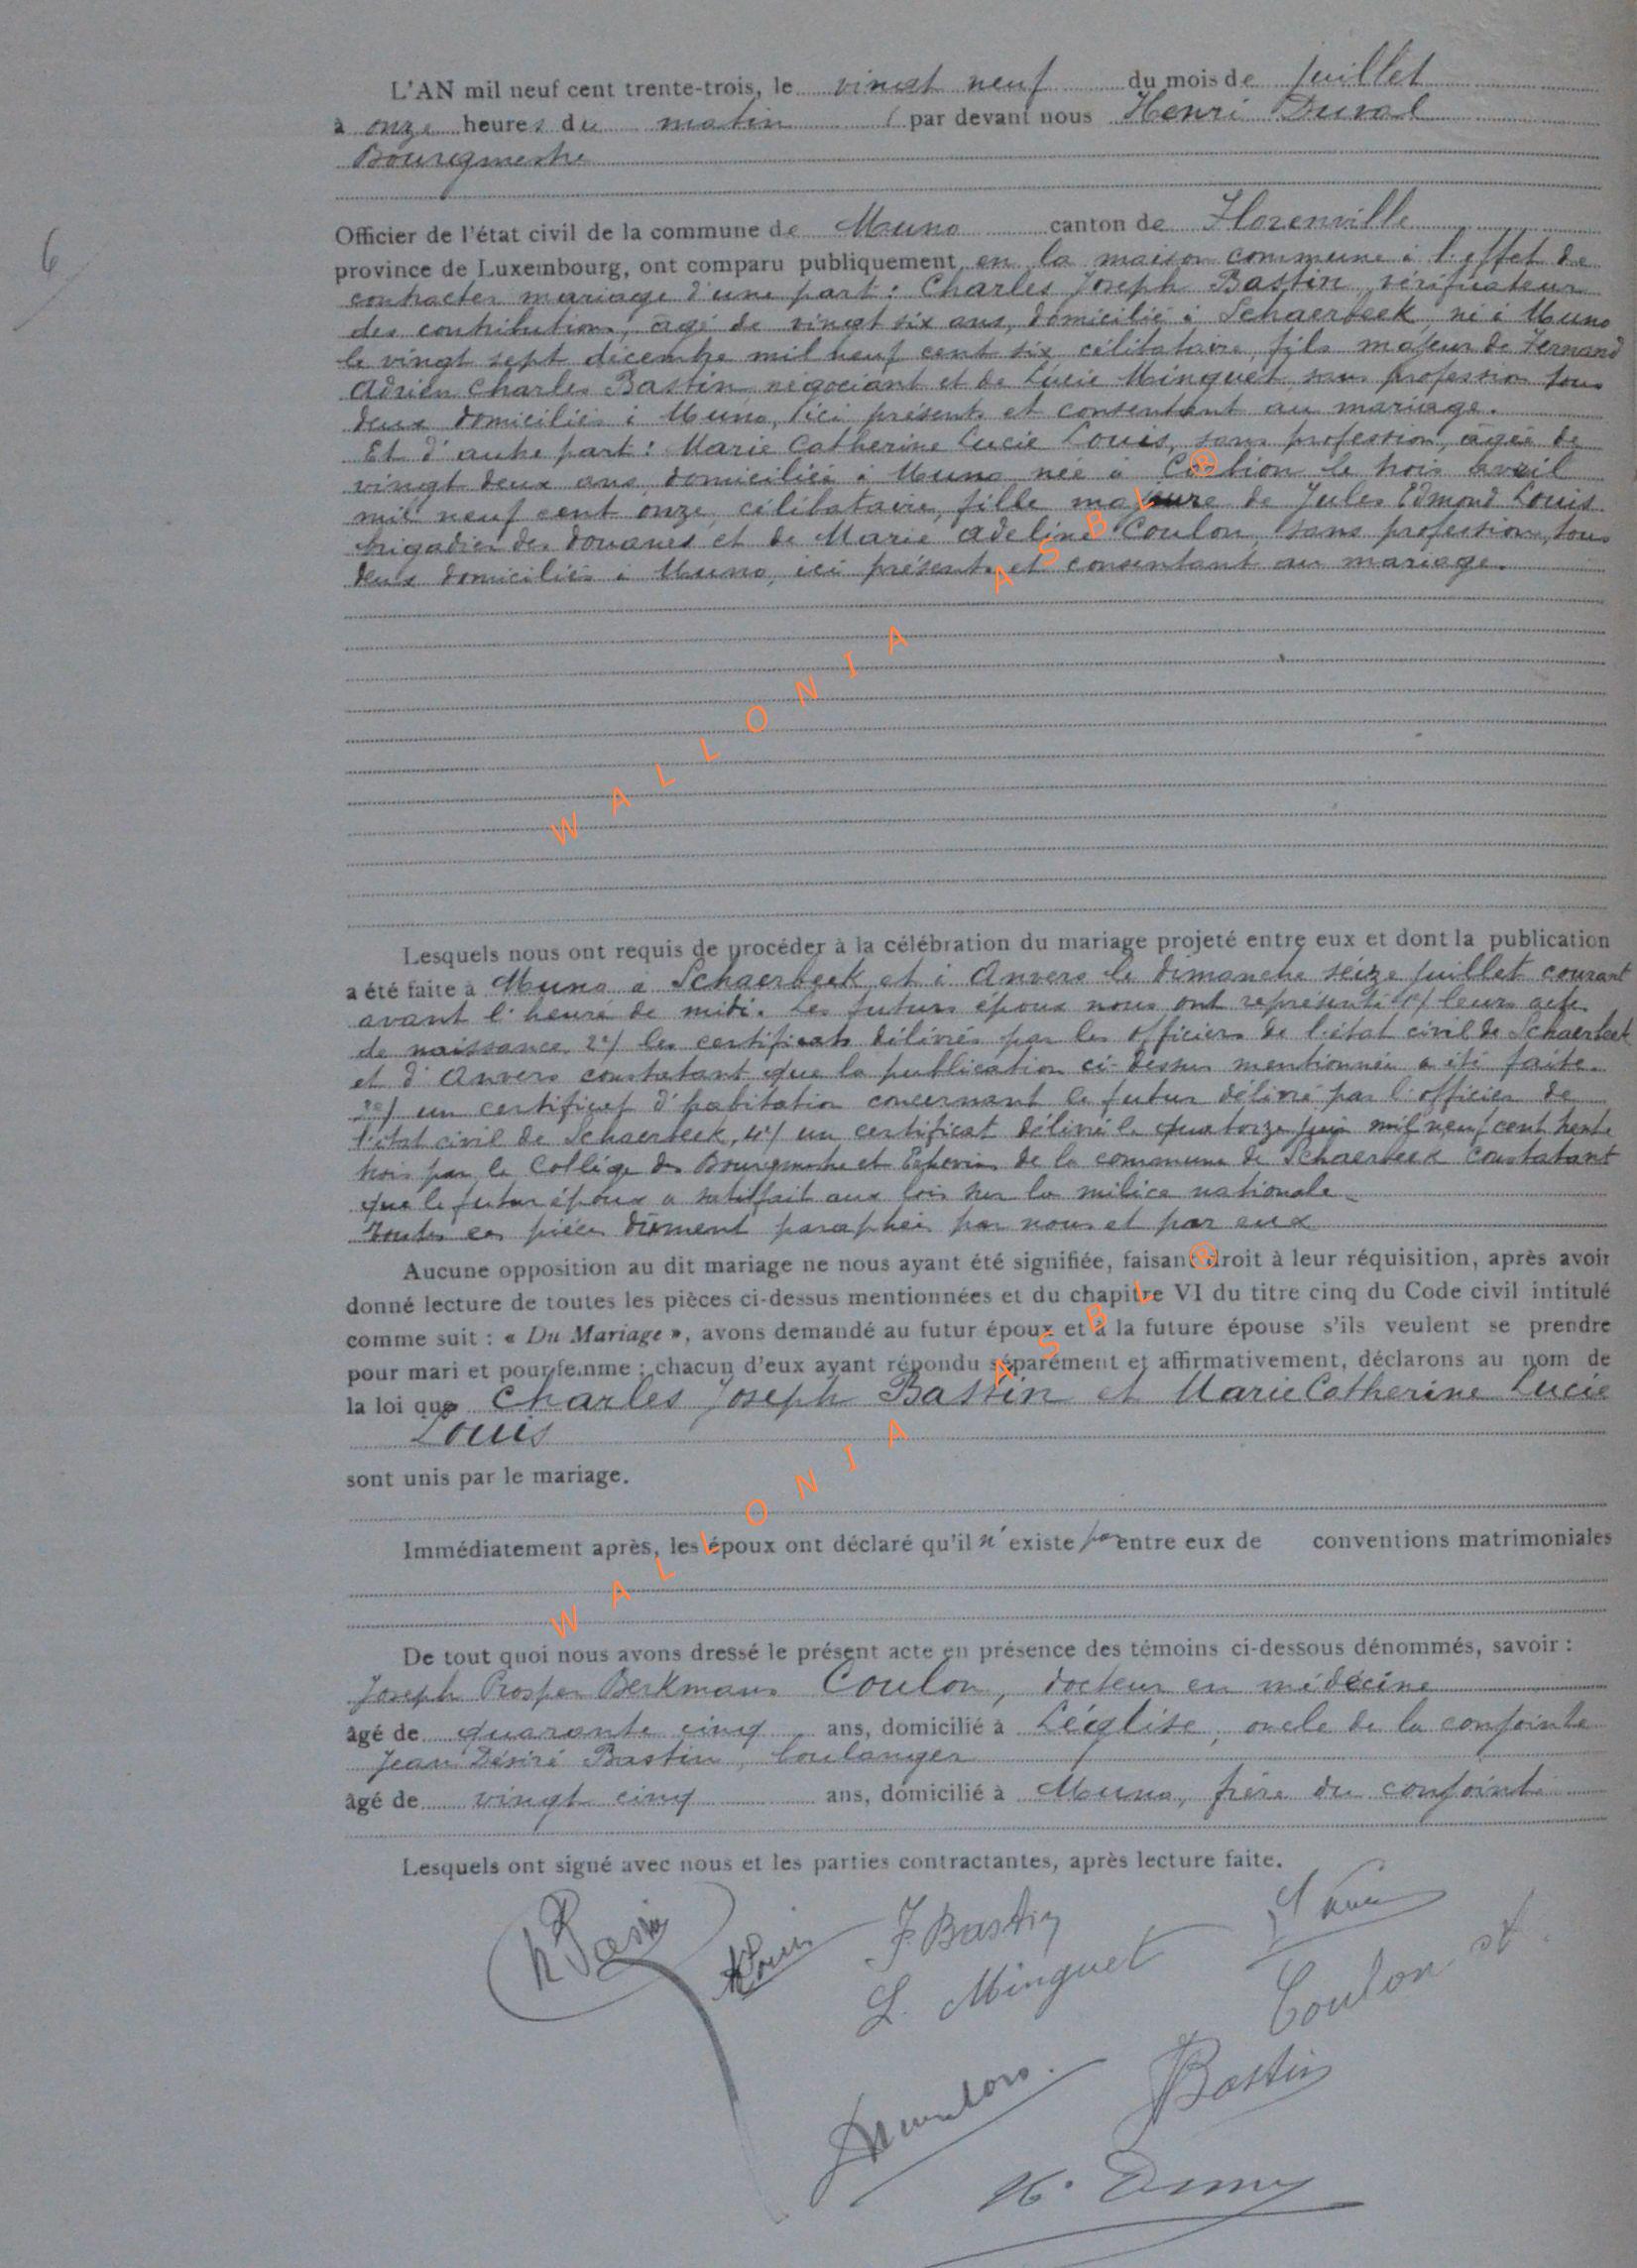 L'AN mil neuf cent trente-trois, le vingt neuf du mois de juillet
à onze heures du matin par devant nous Henri Duval
Bourgmestre
6
Officier de l'état civil de la commune de Muno canton de Florenville
province de Luxembourg, ont comparu publiquement en la maison commune à l'effet de
contracter mariage d'une part : Charles Joseph Bastin, vérificateur
des contributions, âgé de vingt six ans, domicilié à Schaerbeek, né à Muno
le vingt sept décembre mil neuf cent six célibataire, fils majeur de Fernand
Adrien Charles Bastin négociant et de Lucie Minguet sans profession tous
deux domiciliés à Muno, ici présents et consentant au mariage.
Et d'autre part : Marie Catherine Lucie Louis, sans profession, âgée de
vingt deux ans, domiciliée à Muno née à le trois avril
mil neuf cent onze, célibataire, fille majeure de Jules Edmond Louis
brigadier des douanes et de Marie Adeline Coulon, sans profession, tous
deux domiciliés à Muno, ici présents et consentant au mariage.
WALLONIA ASBL ®
Lesquels nous ont requis de procéder à la célébration du mariage projeté entre eux et dont la publication
a été faite à Muno à Schaerbeek et à Anvers le dimanche seize juillet courant
avant l'heure de midi. Les futurs époux nous ont représenté 1°/ leurs actes
de naissance 2°/ les certificats délivrés par les officiers de l'état civil de Schaerbeek
et d'Anvers constatant que la publication ci-dessus mentionnée a été faite.
3°/ un certificat d'habitation concernant le futur délivré par l'officier de
l'état civil de Schaerbeek, 4°/ un certificat délivré le quatorze juin mil neuf cent trente
trois par le Collège des Bourgmestre et Echevins de la commune de Schaerbeek constatant
que le futur époux a satisfait aux lois sur la milice nationale
Toutes ces pièces dûment paraphées par nous et par eux
Aucune opposition au dit mariage ne nous ayant été signifiée, faisant droit à leur réquisition, après avoir
donné lecture de toutes les pièces ci-dessus mentionnées et du chapitre VI du titre cinq du Code civil intitulé
comme suit : « Du Mariage », avons demandé au futur époux et à la future épouse s'ils veulent se prendre
pour mari et pour femme ; chacun d'eux ayant répondu séparément et affirmativement, déclarons au nom de
la loi que Charles Joseph Bastin et Marie Catherine Lucie
Louis
sont unis par le mariage.
Immédiatement après, les époux ont déclaré qu'il n'existe pas entre eux de conventions matrimoniales
WALLONIA ASBL ®
De tout quoi nous avons dressé le présent acte en présence des témoins ci-dessous dénommés, savoir :
Joseph Prosper Berkmans Coulon, docteur en médecine
âgé de quarante cinq ans, domicilié à Léglise, oncle de la conjointe
Jean Désiré Bastin, boulanger
âgé de vingt cinq ans, domicilié à Muno, frère du conjoint
Lesquels ont signé avec nous et les parties contractantes, après lecture faite.
F. Bastin
L. Minguet
Coulon
JBastin